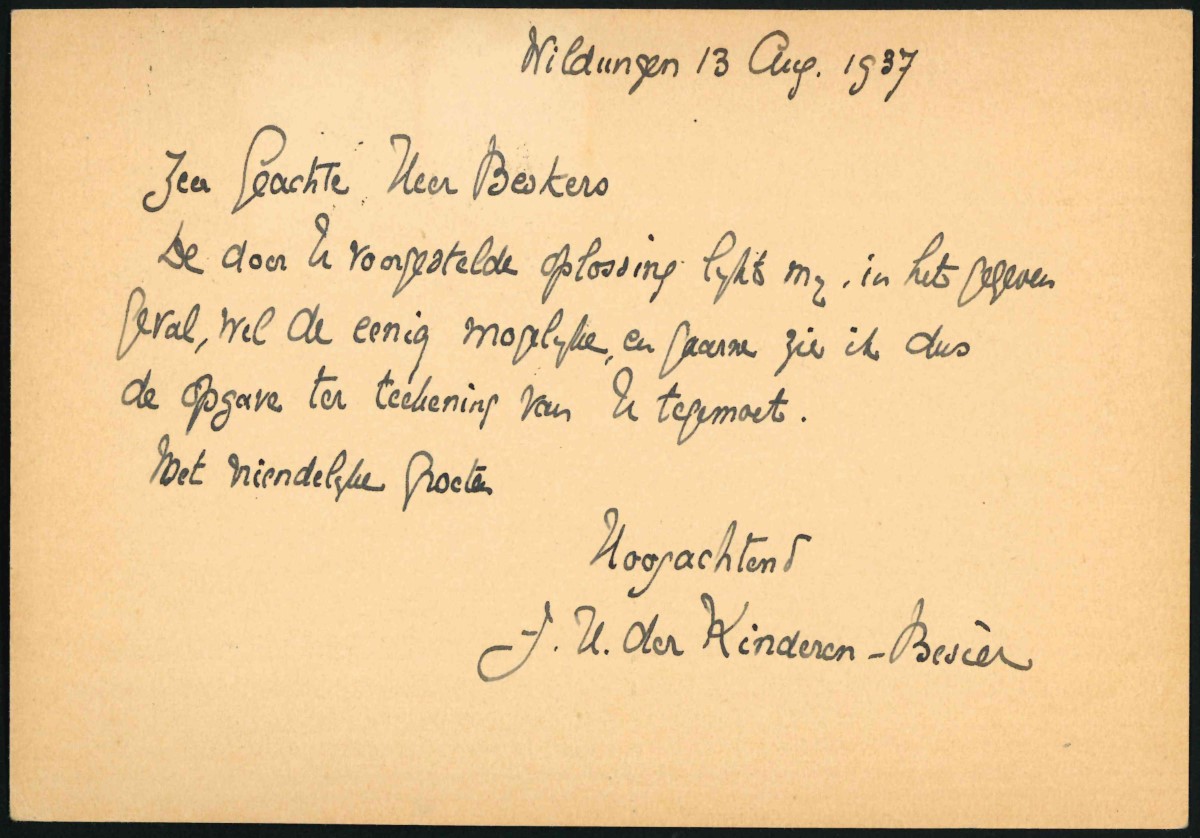 Wildungen 13 Aug. 1937
Zeer Geachte Heer Beskers
De door U voorgestelde oplossing lykt my, in het gegeven
geval, wel de eenig mogelyke, en gaarne zie ik dus
de opgave ter teekening van U tegemoet.
Met vriendelyke groeten
Hoogachtend
J. H. der Kinderen - Besier